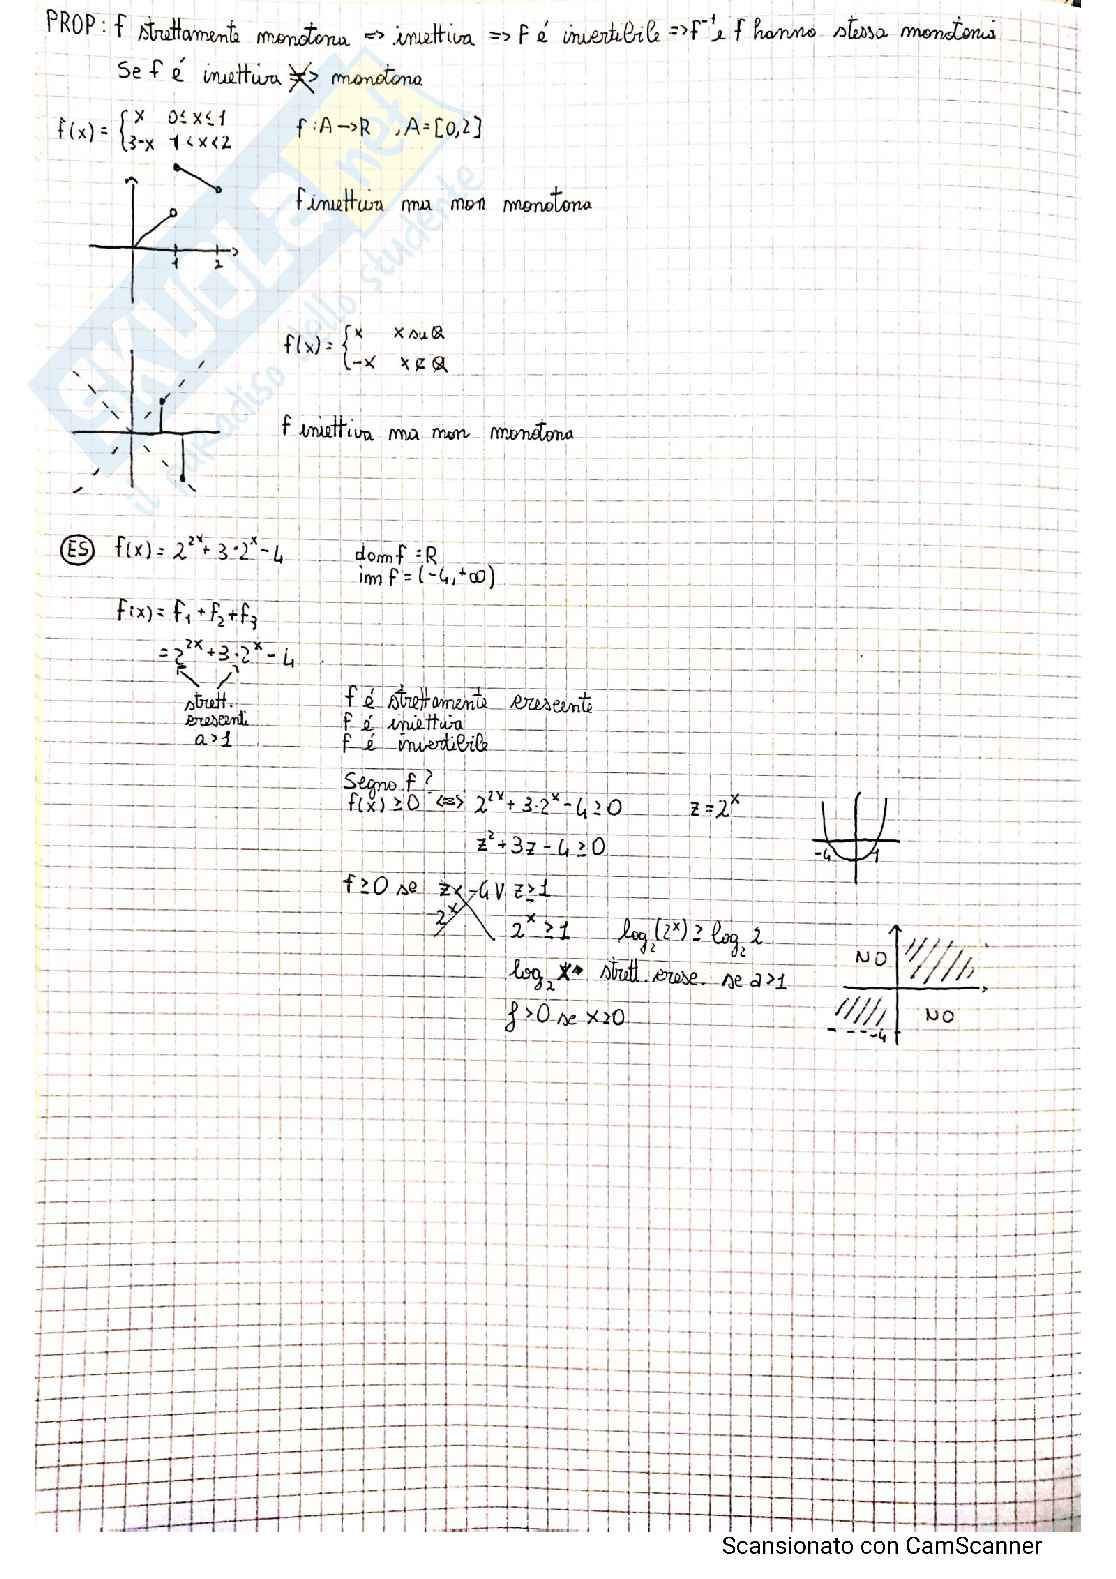 PROP: f strettamente monotona => iniettiva => f é invertibile => f⁻¹ e f hanno stessa monotonia
Se f é iniettiva ≠> monotona
f(x) = { x 0≤x≤1
{ 3-x 1<x<2
f: A → R , A = [0,2]
f iniettiva ma non monotona
1 2
f(x) = { x x su Q
{ -x x ∉ Q
f iniettiva ma non monotona
ES f(x) = 2^2x + 3·2^x - 4
dom f = R
im f = (-4, +∞)
f(x) = f₁ + f₂ + f₃
= 2^2x + 3·2^x - 4
strett.
crescenti
a>1
f é strettamente crescente
f é iniettiva
f é invertibile
Segno f?
f(x) ≥ 0 <=> 2^2x + 3·2^x - 4 ≥ 0 z = 2^x
z² + 3z - 4 ≥ 0
-4 1
f ≥ 0 se z< -4 V z ≥ 1
2^x
2^x ≥ 1 log₂(2^x) ≥ log₂ 2
log₂ x strett. cresc. se a>1
f > 0 se x≥0
NO
NO
-4
SKUOLA.net
il paradiso dello studente
Scansionato con CamScanner